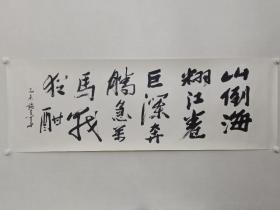 山倒海
翻江卷
巨澜奔
腾急万
馬战
犹酣